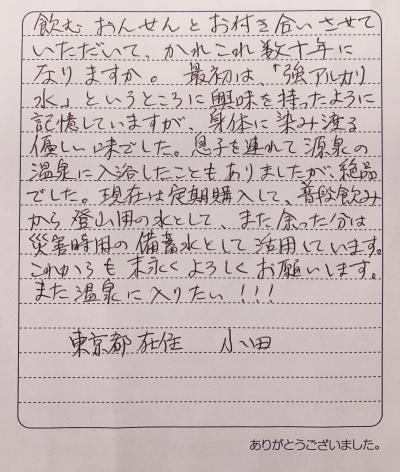 飲むおんせんとお付き合いさせて
いただいて、かれこれ数十年に
なりますか。 最初は、「強アルカリ
水」というところに興味を持ったように
記憶していますが、身体に染み渡る
優しい味でした。息子を連れて源泉の
温泉に入浴したこともありましたが、絶品
でした。現在は定期購入して、普段飲み
から登山用の水として、また余った分は
災害時用の備蓄水として活用しています。
これからも末永くよろしくお願いします。
また温泉に入りたい!!!
東京都在住 小田
ありがとうございました。